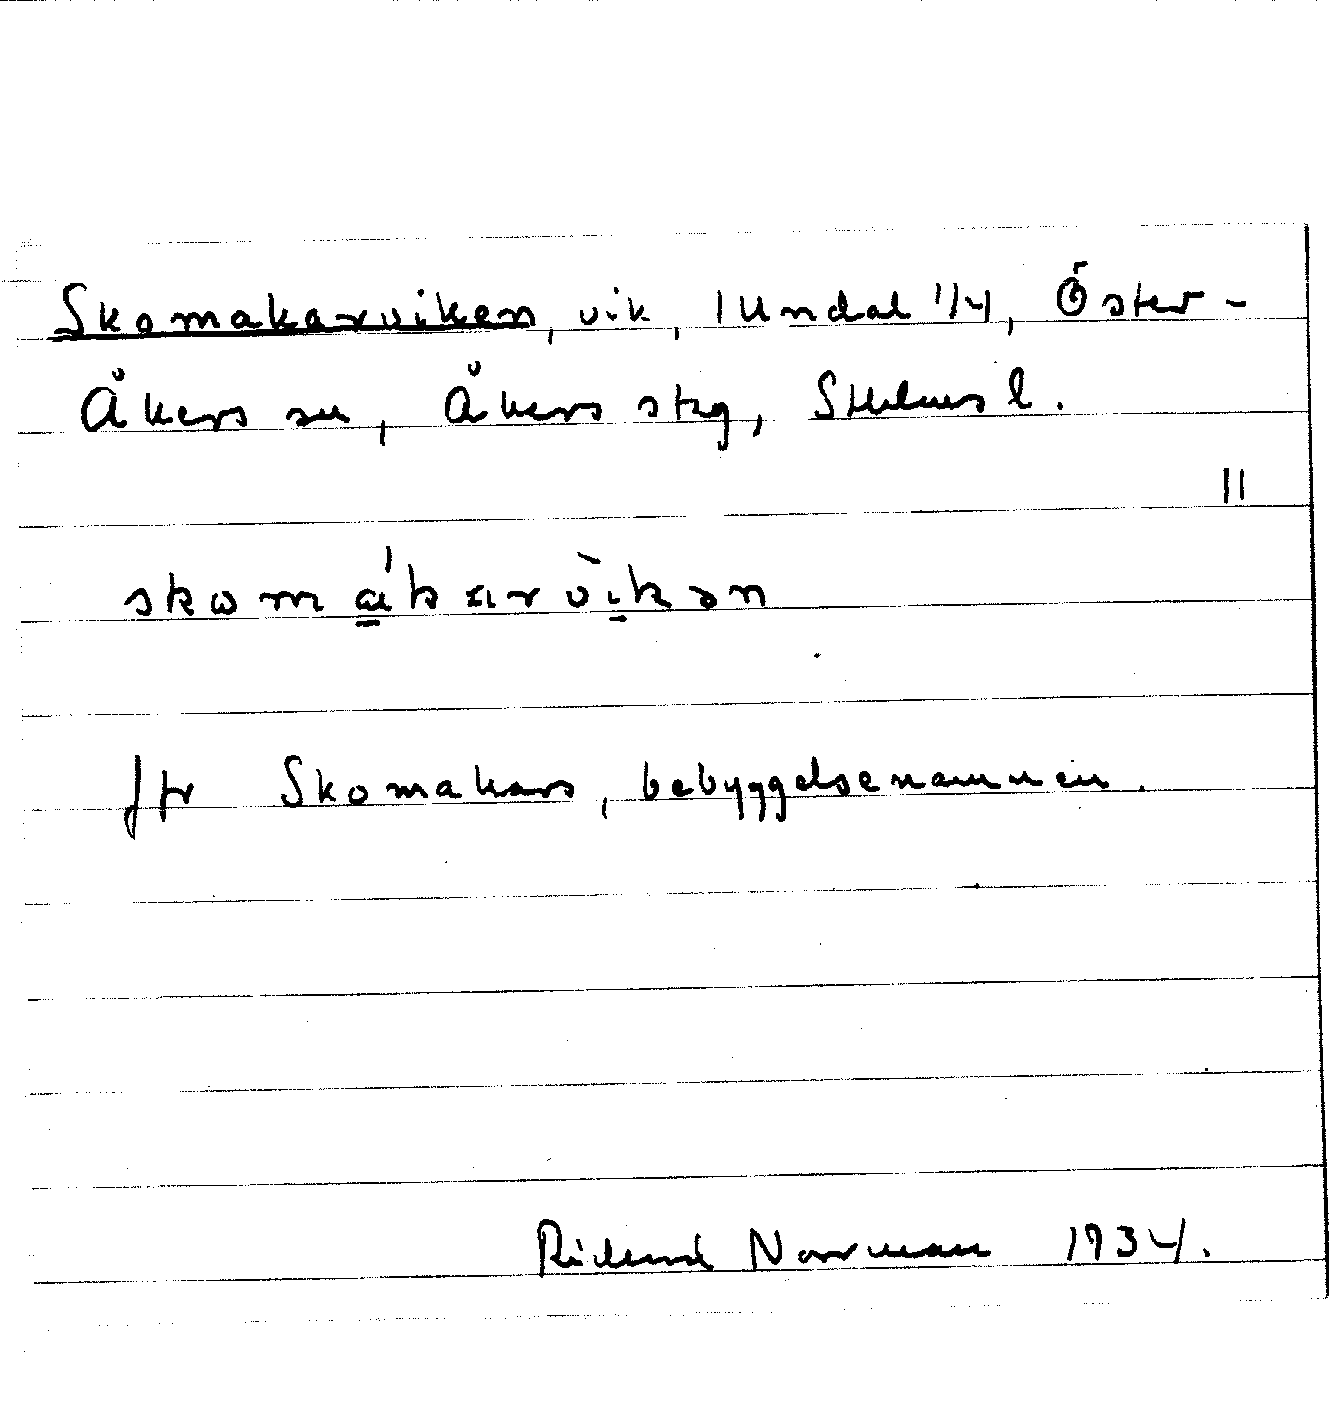 Skomakarviken, vik, Undal 1/4, Öster-
Åkers sn, Åkers skg, Sthlms l.
11
skomakarvikən
Jfr Skomakars, bebyggelsenamnen.
Rickard Norrman 1934.